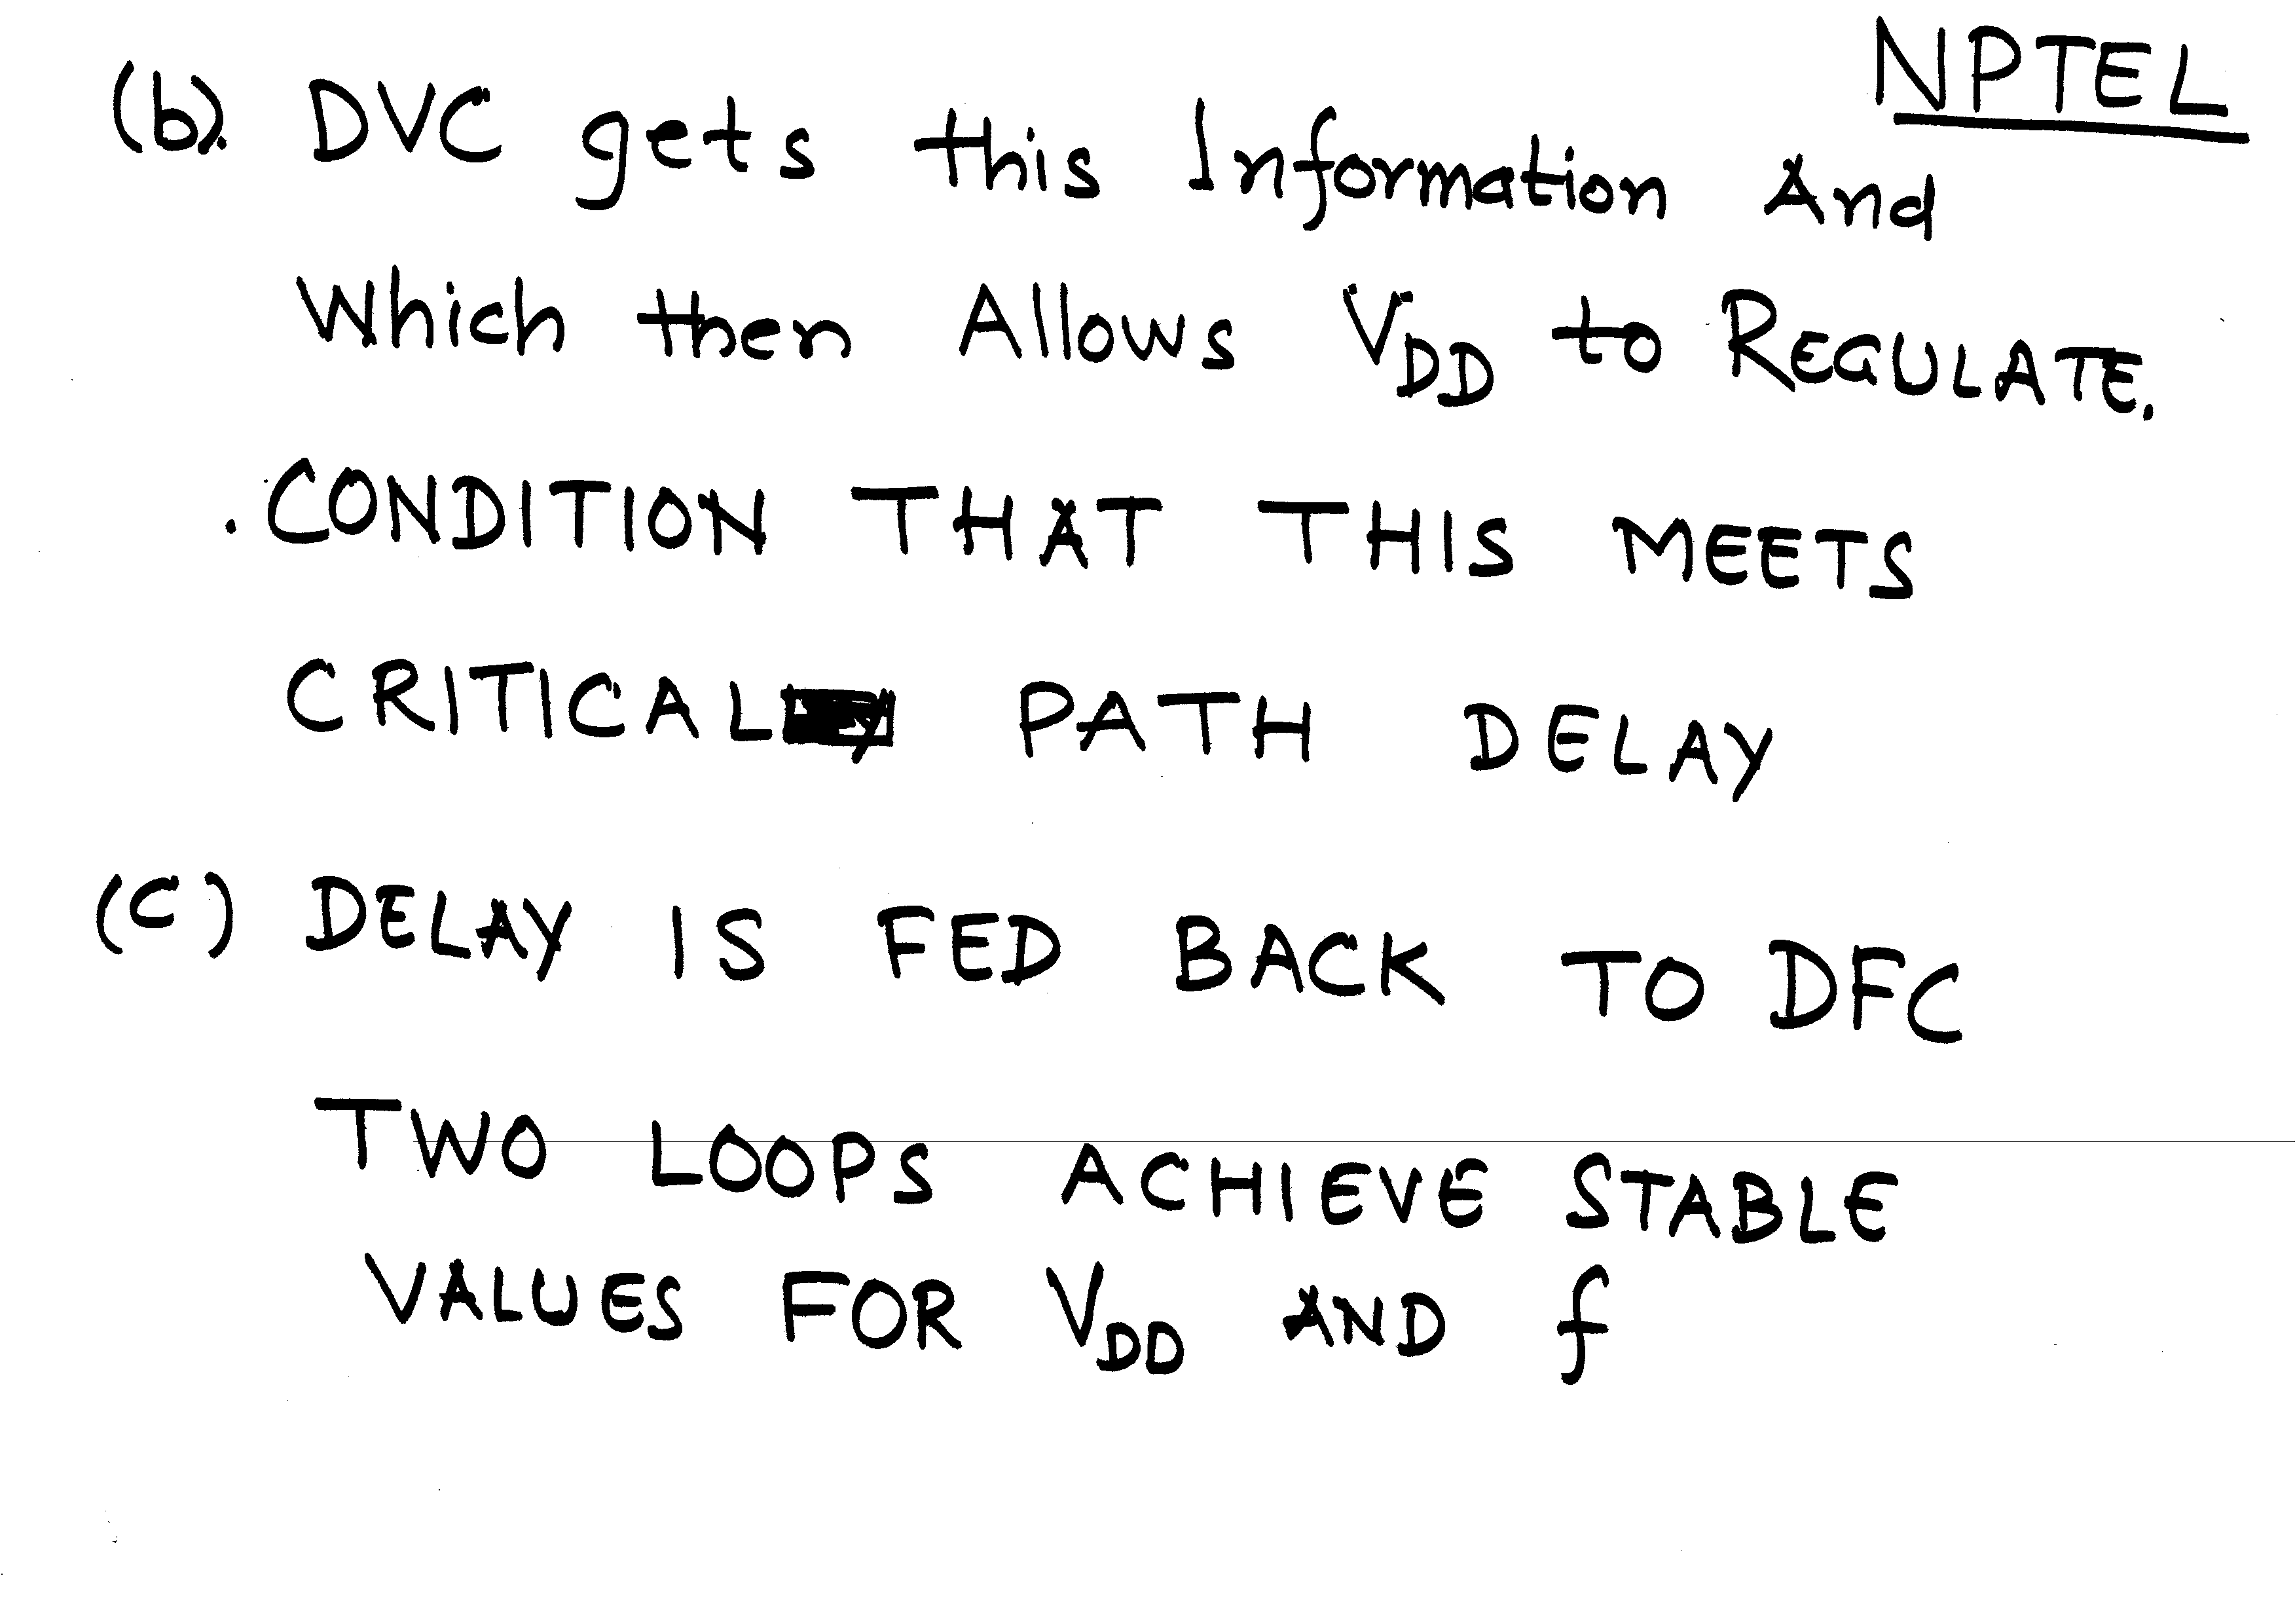 NPTEL
(b). DVC gets this Information And
Which then Allows VDD to REGULATE.
. CONDITION THAT THIS MEETS
CRITICAL PATH DELAY
(C) DELAY IS FED BACK TO DFC
TWO LOOPS ACHIEVE STABLE
VALUES FOR VDD AND f